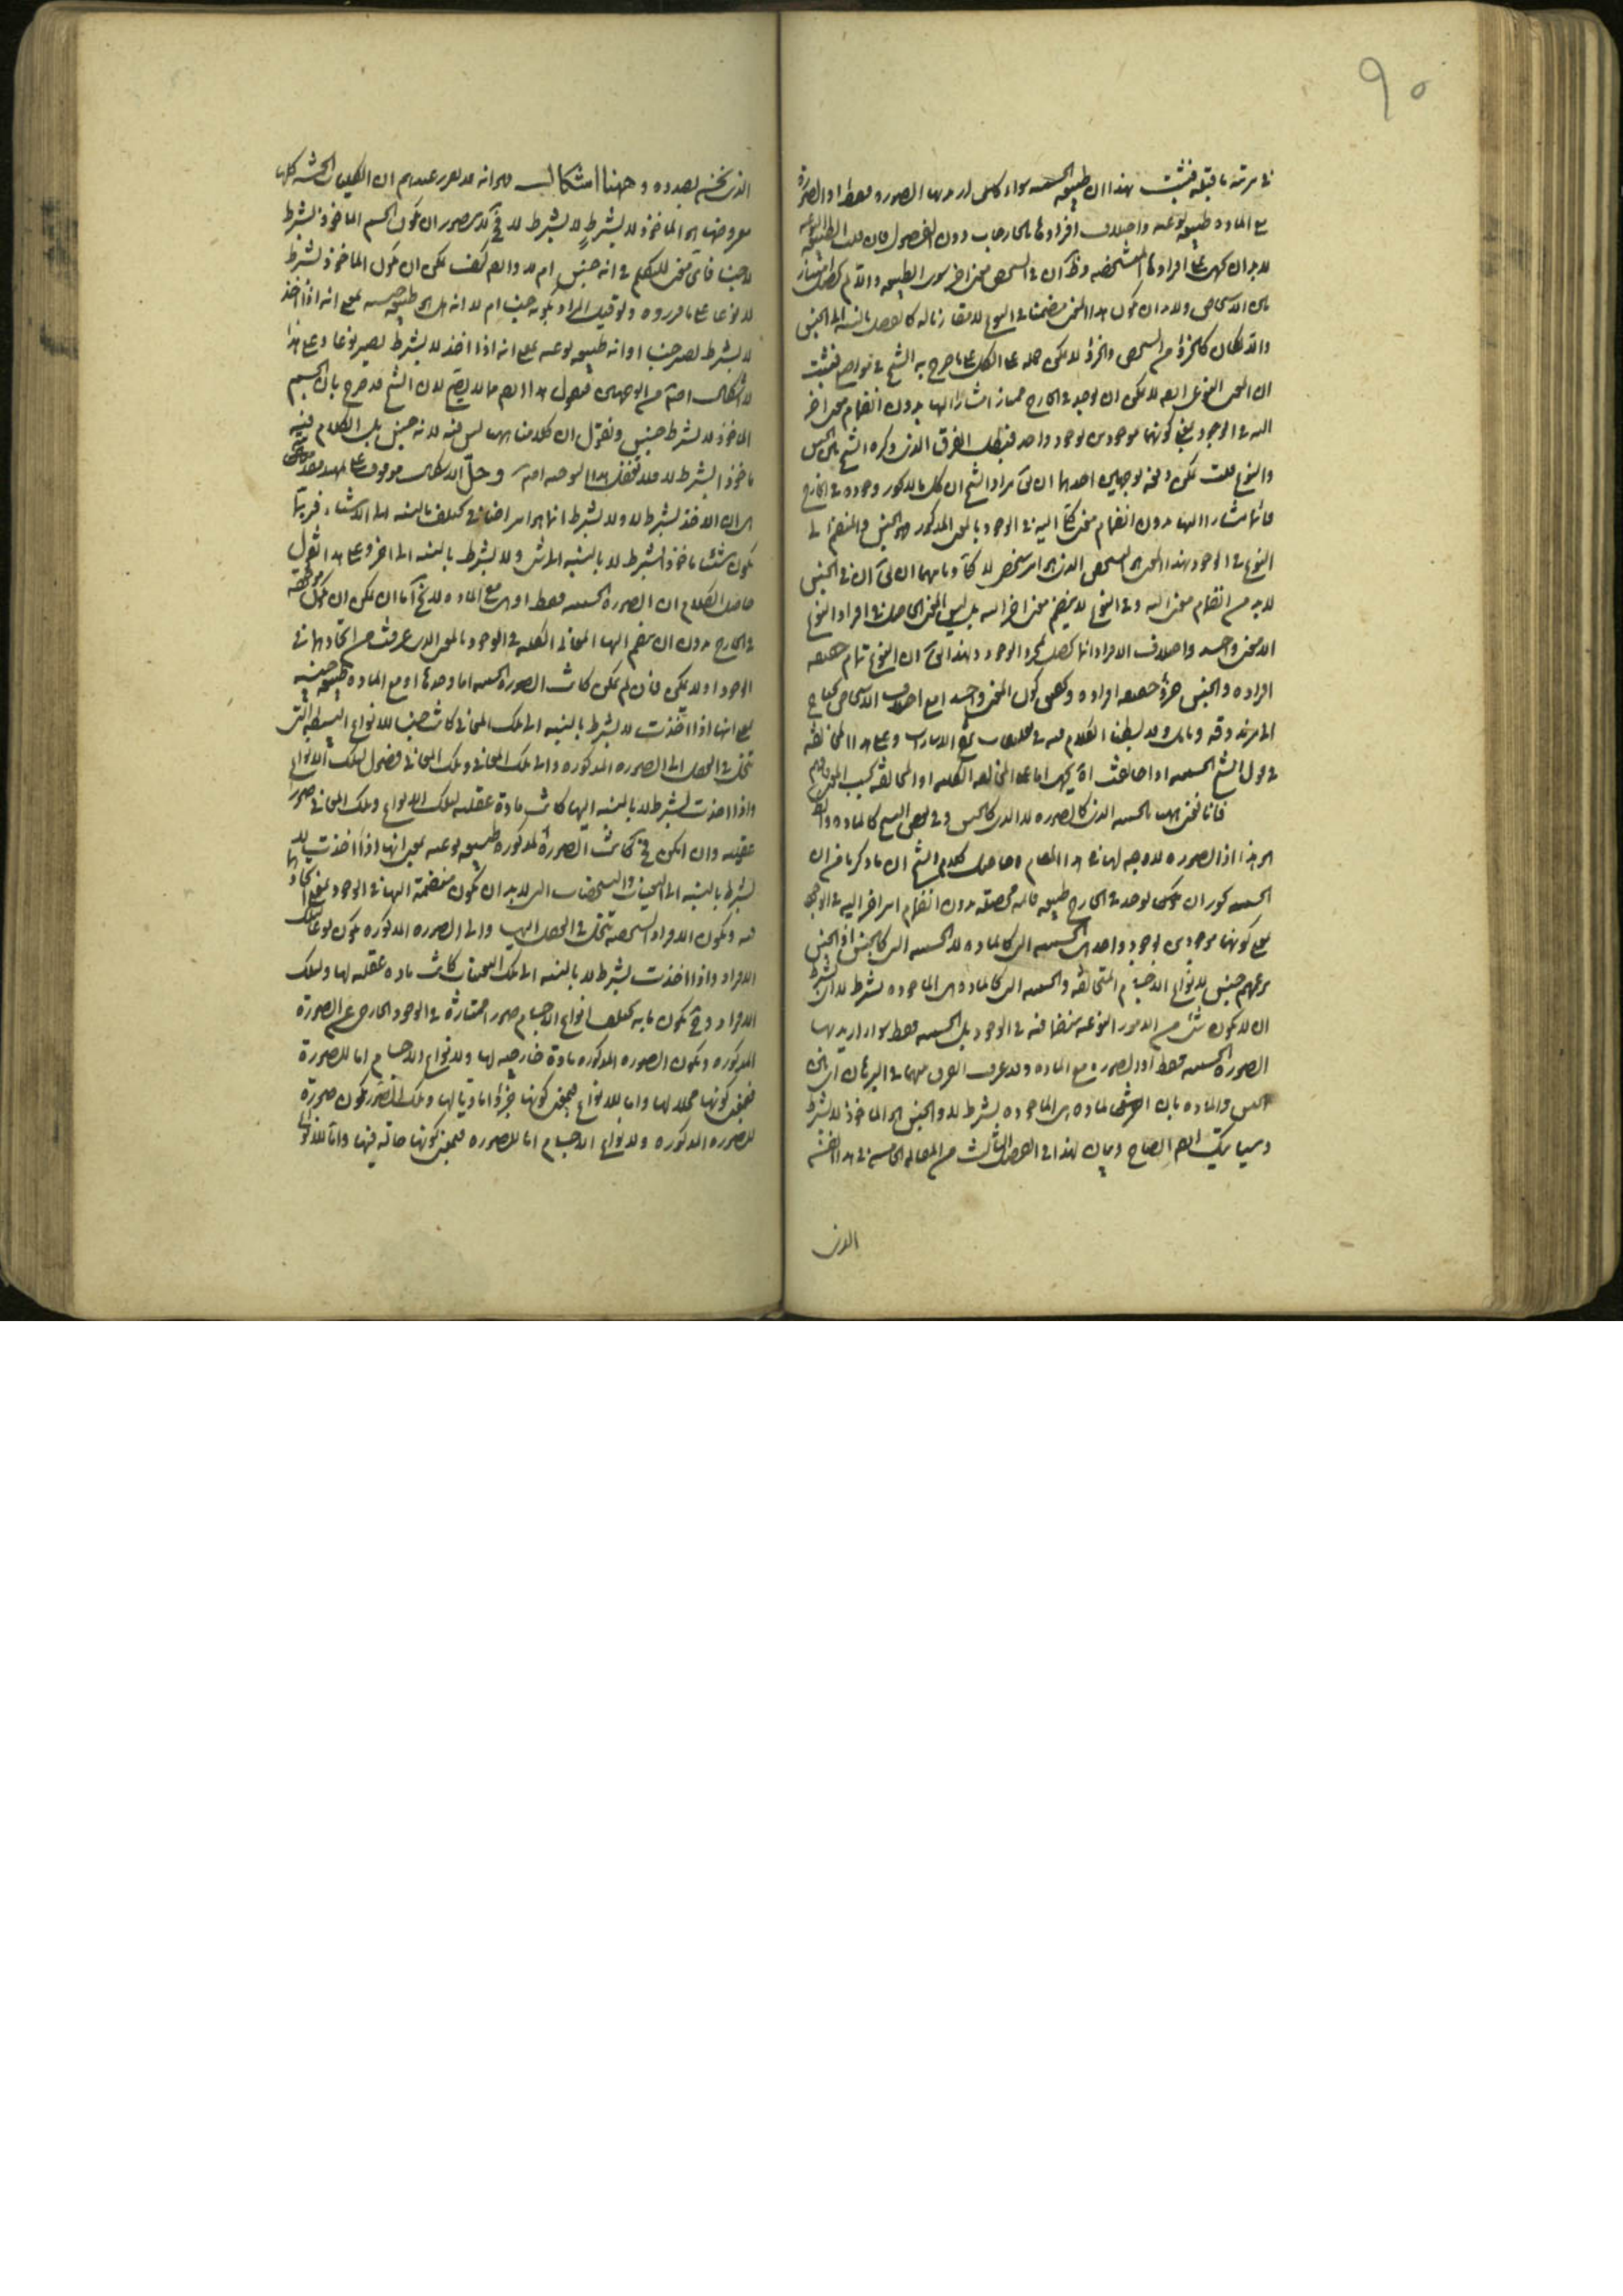 ٩٥
في مرتبة ما قبله فثبت بهذا ان طبيعة الجسمية سواء كان اريد بها الصورة فقط او الصورة
مع المادة طبيعة نوعية واختلاف افرادها بالخارجيات دون الفصول فان قلت الطبيعة
لا بد ان افرادها المتشخصة
بين الاشخاص ولا بد ان يكون هذا المعنى منضما في النوع
والا لكان كالجزء من الشخص والجزء لا يمكن حمله على الكل على ما صرح به الشيخ في مواضع فثبت
ان المعنى النوعي ايضا لا يمكن ان يوجد في الخارج ممتازا مشارا اليها بدون انضمام معنى اخر
اليه في الوجود بمعنى كونهما موجودين بوجود واحد فبطل الفرق الذي ذكره الشيخ بين الجنس
والنوع قلت يمكن دفعه بوجهين احدهما ان مراد الشيخ ان كل ما المذكور وجوده في الخارج
مشارا اليها بدون انضمام معنى اليه في الوجود بالمعنى المذكور فهو الجنس والمنضم الى
النوع في الوجود بهذا المعنى هو التشخص الذي هو امر شخصي لا وثانيهما ان في الجنس
لا بد من انضمام معنى اليه وفي النوع لا ينضم معنى اخر اليه بل ليس المعنى الحاصل في افراد النوع
الا معنى واحد واختلاف الافراد انما يحصل بمجرد الوجود ولهذا ان النوع تمام حقيقة
افراده والجنس جزء حقيقة افراده وتحقيق كون المعنى واحدا مع اختلاف الاشخاص يحتاج
الى مزيد دقة وتأمل وقد بسطنا الكلام فيه في الاشارات وعلى هذا المخالفة
في قول الشيخ الجسمية اذا خالفت اخرى اما على المخالفة الكلية او المخالفة بحسب المعنى
فانا نعني بالجسمية الذي كالصورة لا الذي كالجنس وفي بعض النسخ كالمادة
هو هذا اذ الصورة لا وجه لها في هذا المقام وحاصل كلام الشيخ ان ما ذكرنا من ان
الجسمية يجوز ان يوجد في الخارج طبيعة بدون انضمام امر اخر اليه في الوجود
بمعنى كونهما موجودين بوجود واحد هي الجسمية التي كالمادة لا الجسمية التي كالجنس اذ الجنس
جنس لانواع الاجسام المتخالفة والجسمية التي كالمادة هي الماخوذة بشرط لا اي بشرط
ان لا يكون شيء من الامور النوعية منضما فيه في الوجود بل الجسمية فقط سواء اريد بها
الصورة الجسمية فقط او الصورة مع المادة وقد عرفت الفرق بينهما في البرهان اي بين
الجنس والمادة بان المادة هي الماخوذة بشرط لا والجنس هو الماخوذ لا بشرط
وسيأتيك ايضا ايضاح وبيان لهذا في الفصل الثالث من المقالة الخامسة في هذا الفن
الذي
الذي نحن بصدده وههنا اشكال وهو انه قد تقرر عندهم ان الكليات الخمسة كلها
معروضها هو الماخوذ لا بشرط لا بشرط لا فح كيف يتصور ان يكون الجسم الماخوذ بشرط
لا جنسا فاي معنى للتكلم في انه جنس ام لا وايضا كيف يمكن ان يكون الماخوذ بشرط
لا نوعا على ما قرروه ولو قيل المراد بكونه جنسا ام لا انه هل هو طبيعة جنسية بمعنى انه اذا اخذ
لا بشرط يصير جنسا او انه طبيعة نوعية بمعنى انه اذا اخذ لا بشرط يصير نوعا وعلى هذا
لا اشكال اصلا من الوجهين فنقول هذا ايضا مما لا يتم لان الشيخ قد صرح بان الجسم
الماخوذ لا بشرط جنس ونقول ان كلامنا ههنا ليس فيه لانه جنس بل الكلام فيه
ماخوذا بشرط لا فلا ينفعك هذا التوجيه اصلا وحل الاشكال موقوف على تمهيد مقدمة
هي ان الاخذ بشرط لا ولا بشرط انما هو امر اضافي يختلف بالنسبة الى الاشياء فربما
يكون شيئا ماخوذا بشرط لا بالنسبة الى شيء ولا بشرط بالنسبة الى اخر وعلى هذا نقول
حاصل الكلام ان الصورة الجسمية فقط او هي مع المادة لا يخ اما ان يمكن ان يكون
في الخارج بدون ان ينضم اليها المعاني الكلية في الوجود بالمعنى الذي عرفت من اتحادهما في
الوجود او لا يمكن فان لم يمكن كانت الصورة الجسمية اما وحدها او مع المادة طبيعة جنسية
بمعنى انها اذا اخذت لا بشرط بالنسبة الى تلك المعاني كانت جنسا للانواع البسيطة التي
تنحل في العقل الى الصورة المذكورة والى تلك المعاني وتلك المعاني فصول لتلك الانواع
واذا اخذت بشرط لا بالنسبة اليها كانت مادة عقلية لتلك الانواع وتلك المعاني صور
عقلية وان امكن فح كانت الصورة المذكورة طبيعة نوعية بمعنى انها اذا اخذت لا
بشرط بالنسبة الى التعينات والتشخصات التي لا بد ان تكون منضمة اليها في الوجود بمعنى اتحادها
فيه ويكون الافراد الشخصية تنحل في العقل اليها والى الصورة المذكورة يكون نوعا لتلك
الافراد واذا اخذت بشرط لا بالنسبة الى تلك التعينات كانت مادة عقلية لها ولتلك
الافراد وح يكون ما به يختلف انواع الاجسام صورا ممتازة في الوجود الخارجي عن الصورة
المذكورة ويكون الصورة المذكورة مادة خارجية لها ولانواع الاجسام اما للصورة
فبمعنى كونها محلا لها واما للانواع فبمعنى كونها جزءا ماديا لها وتلك الصور يكون صورة
للصورة المذكورة ولانواع الاجسام اما للصورة فبمعنى كونها حالة فيها واما للانواع